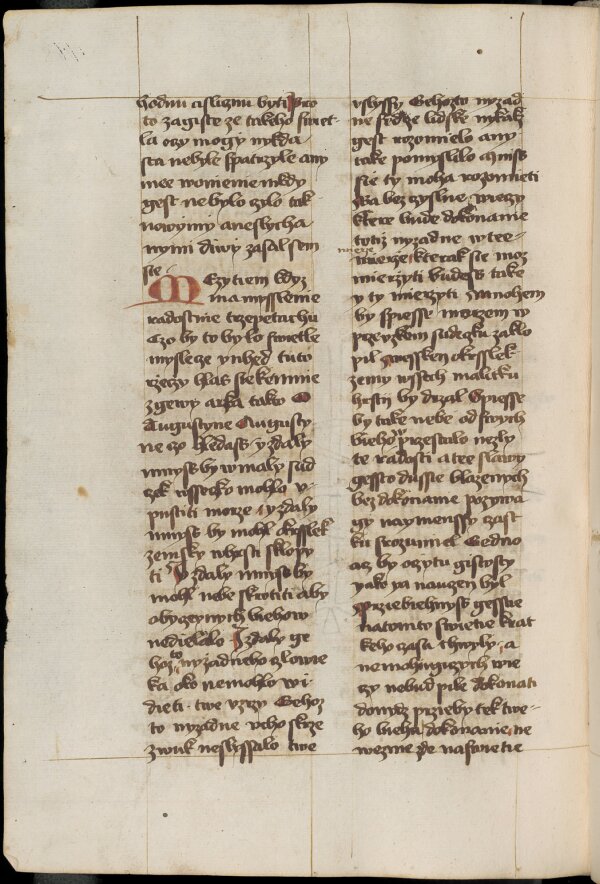 hodinu cisligmu byti pro
to zagiste ze takeho swiet-
la oczy mogy nikda
sta nebyle spatrzyle any
mee wonienie nikdy
gest nebylo czylo tak
nowymi a neslycha
nymi diwy zasal sem
sie
Mezytiem kdyz
ma myssleme
radostnie trzepetachu
Czo by to bylo swietle
mysleze ynhed tuto
rzeczy hlas sie ke mnie
zgewy arka tako O
Augustyne Augusty
ne czo hledass y zdaly
mniss by w maly sud
czek wssecko mohlo w-
pustiti morze y zdaly
mniss by mohl okrsslek
zemsky w hrsti sklopy
ti Y zdaly mniss by
mohl nebe skrotiti aby
obyczeynych biehow
nedielalo Y zdaly ge
hoz to nyzadneho czlowie
ka oko nemohlo wi-
dieti twe uzrzy Gehoz
to nyzadne ucho skrze
zwuk neslyssalo twe
uslyssy Gehozto nyzad
ne srdcze lidske nykakz
gest rozomielo any
take pomyslilo mniss
sie ty moha rozomieti
Zda bez czyslne wieczy
ktere bude dokonanie
totiz nyzadne w tee
mierze
mierze kterak sie moz
mierzyti budess take
y ty mierzyti Zmnohem
by spiesse morzem w
przeuzkem sudczku zaklo
pil Zwssken okrsslek
zemy wssech malitku
hrsti by drzal Spiesse
by take nebe od swych
biehow przestalo nezly
te radosti a tee slawy
gessto dussie blazenych
bez dokonanie pozywa
gy naymenssy czast
ku srozumiel Gedno
az by oczytu gistosty
yako ya nauczen byl
Przebiehnyss gesste
na tomto swietie krat
keho czasu chwyly a
ne mohugiczych wie
czy nebud pile dokonati
donwz przieby tek twe-
ho biehu dokonanie ne
wezme Ze na swietie